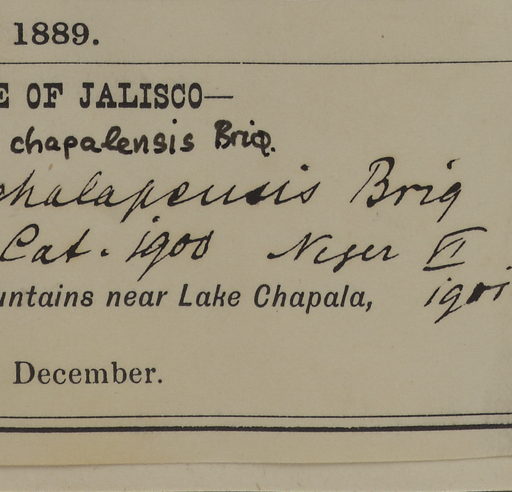 1889.
E OF JALISCO—
chapalensis Briq.
chalapensis Briq
Cat. 1900 VI
untains near Lake Chapala, 1901
December.